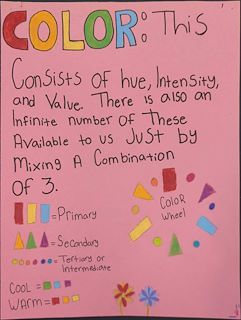 COLOR: This
Consists of hue, Intensity,
and Value. There is also an
Infinite number of These
Available to us Just by
Mixing A Combination
of 3.
=Primary
=Secondary
=Tertiary or
Intermediate
COOL =
WARM=
Color
Wheel